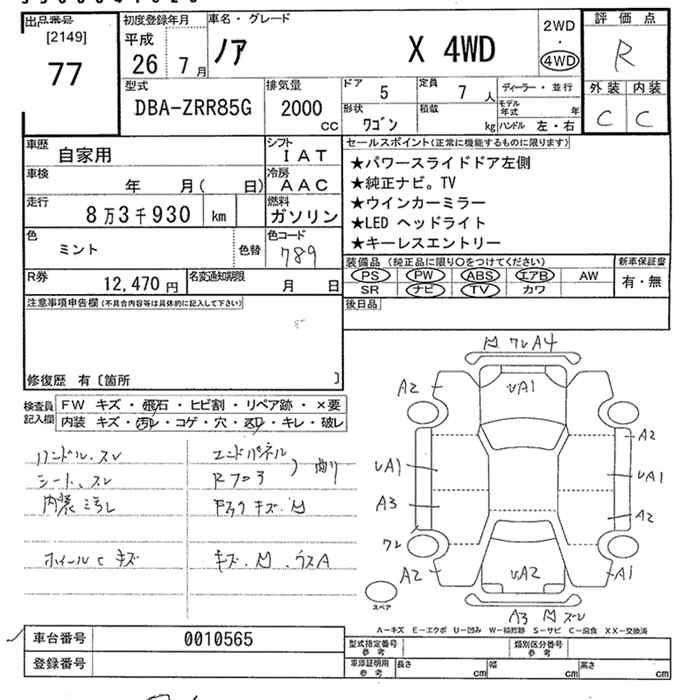 出品番号
[2149]
77
初度登録年月
平成
26 7 月
車名・グレード
ノア X 4WD
2WD
・
4WD
評価点
R
外装 内装
C C
型式
DBA-ZRR85G
排気量
2000
cc
ドア 5
定員 7 人
形状
ワゴン
積載
kg
ディーラー・並行
モデル年式 年
ハンドル 左・右
車歴
自家用
シフト
IAT
車検
年 月( 日)
冷房
AAC
走行
8万3千930 km
燃料
ガソリン
色
ミント
色替
色コード
789
R券
12,470 円
名変通知期限
月 日
セールスポイント(正常に機能するものに限ります)
★パワースライドドア左側
★純正ナビ。TV
★ウインカーミラー
★LED ヘッドライト
★キーレスエントリー
装備品 (純正品に限り○をつけてください)
PS PW ABS エアB AW
SR ナビ TV カワ
新車保証書
有・無
後日品
注意事項申告欄(不具合内容等は具体的に記入して下さい)
修復歴 有〔箇所 〕
検査員
記入欄
FW キズ・飛石・ヒビ割・リペア跡・×要
内装 キズ・汚レ・コゲ・穴・スリ・キレ・破レ
ハンドル、スレ
シート、スレ
内装ミラレ
ホイールcキズ
エンドパネル
Rフロア
キズ
ワレA4
A2
UA1
A2
UA1
UA1
A3
A2
ワレ
A2
UA2
A1
A3
ズレ
スペア
A-キズ E-エクボ U-凹み W-補修跡 S-サビ C-腐食 XX-交換済
車台番号
0010565
登録番号
型式指定番号
参考
類別区分番号
参考
車庫証明用
参考
長さ cm
幅 cm
高さ cm